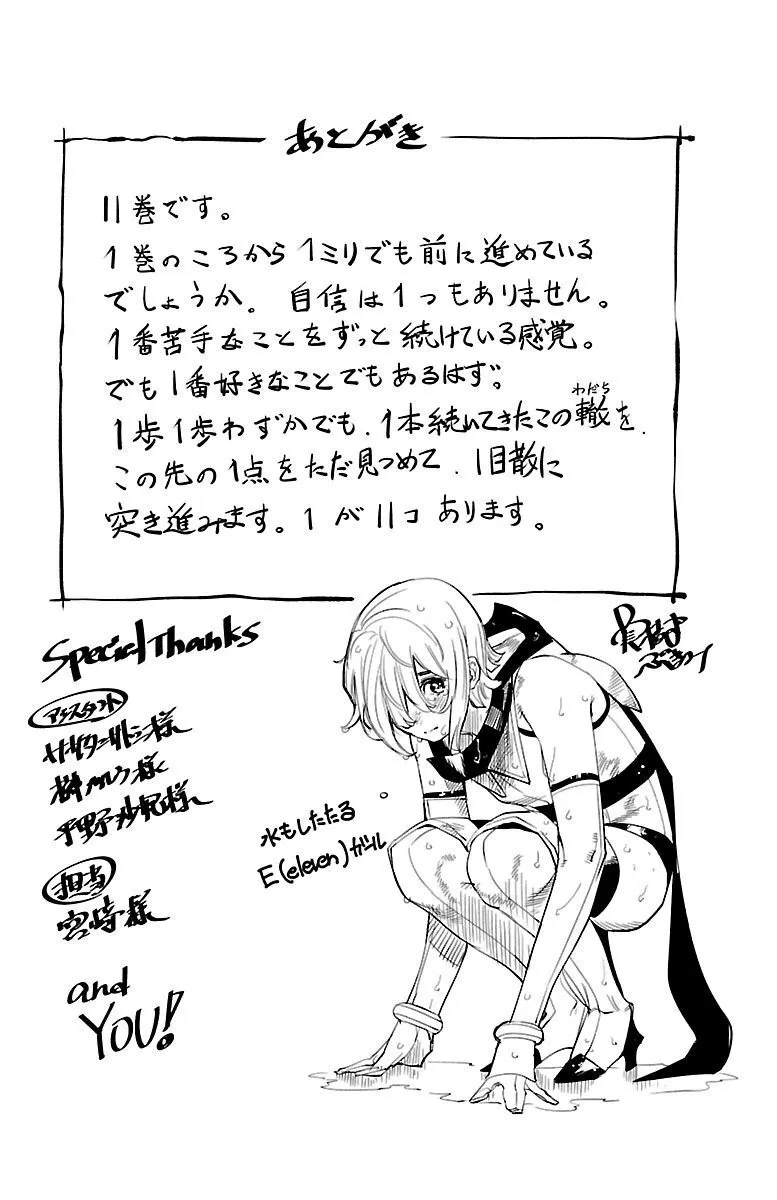 あとがき
11巻です。
1巻のころから1ミリでも前に進めている
でしょうか。 自信は1つもありません。
1番苦手なことをずっと続けている感覚。
でも1番好きなことでもあるはず。
わだち
1歩1歩わずかでも、1本続いてきたこの轍を、
この先の1点をただ見つめて、1目散に
突き進みます。1が11コあります。
Special Thanks
アシスタント
様
様
平野沙
様
担当
宮崎様
and
YOU!
水もしたたる
E(eleven)ガール